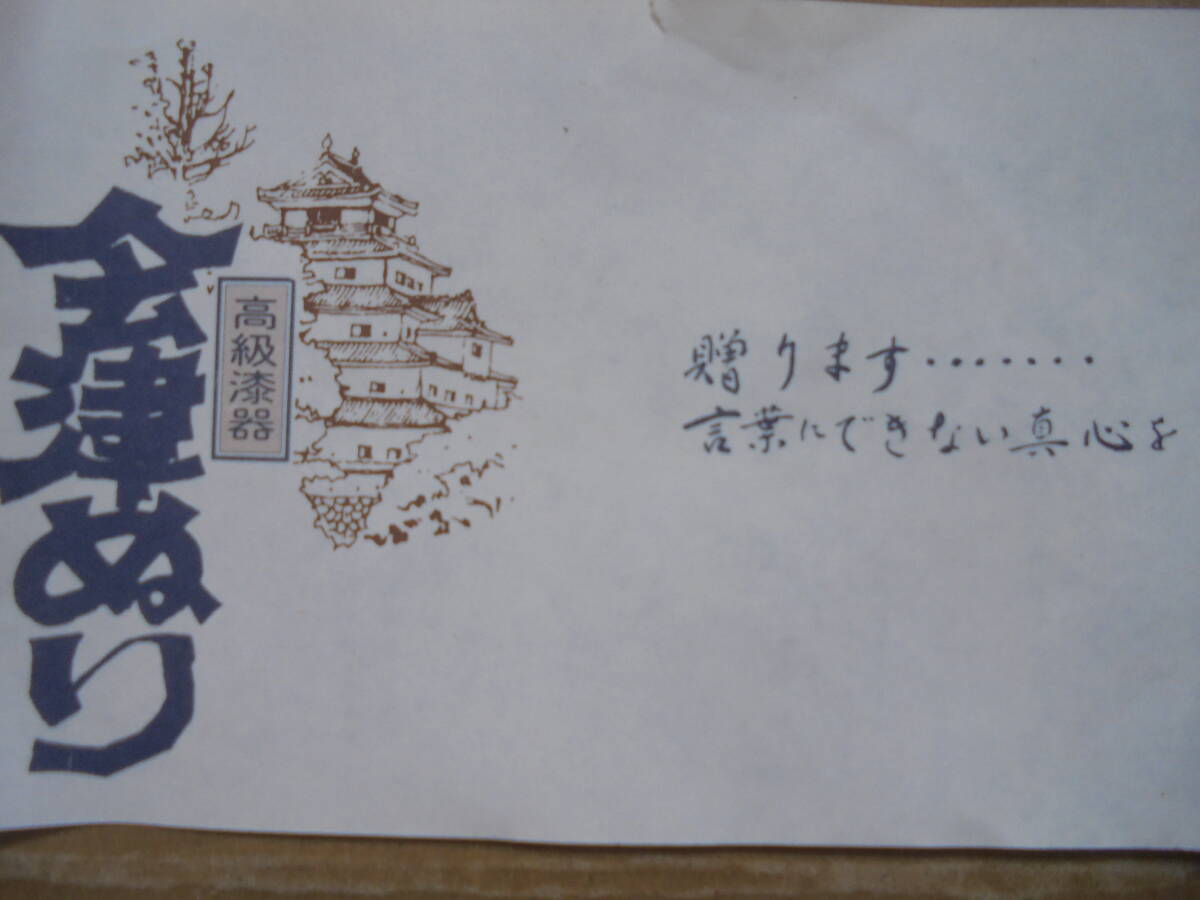 会津ぬり
高級漆器
贈ります・・・・・・・
言葉にできない真心を